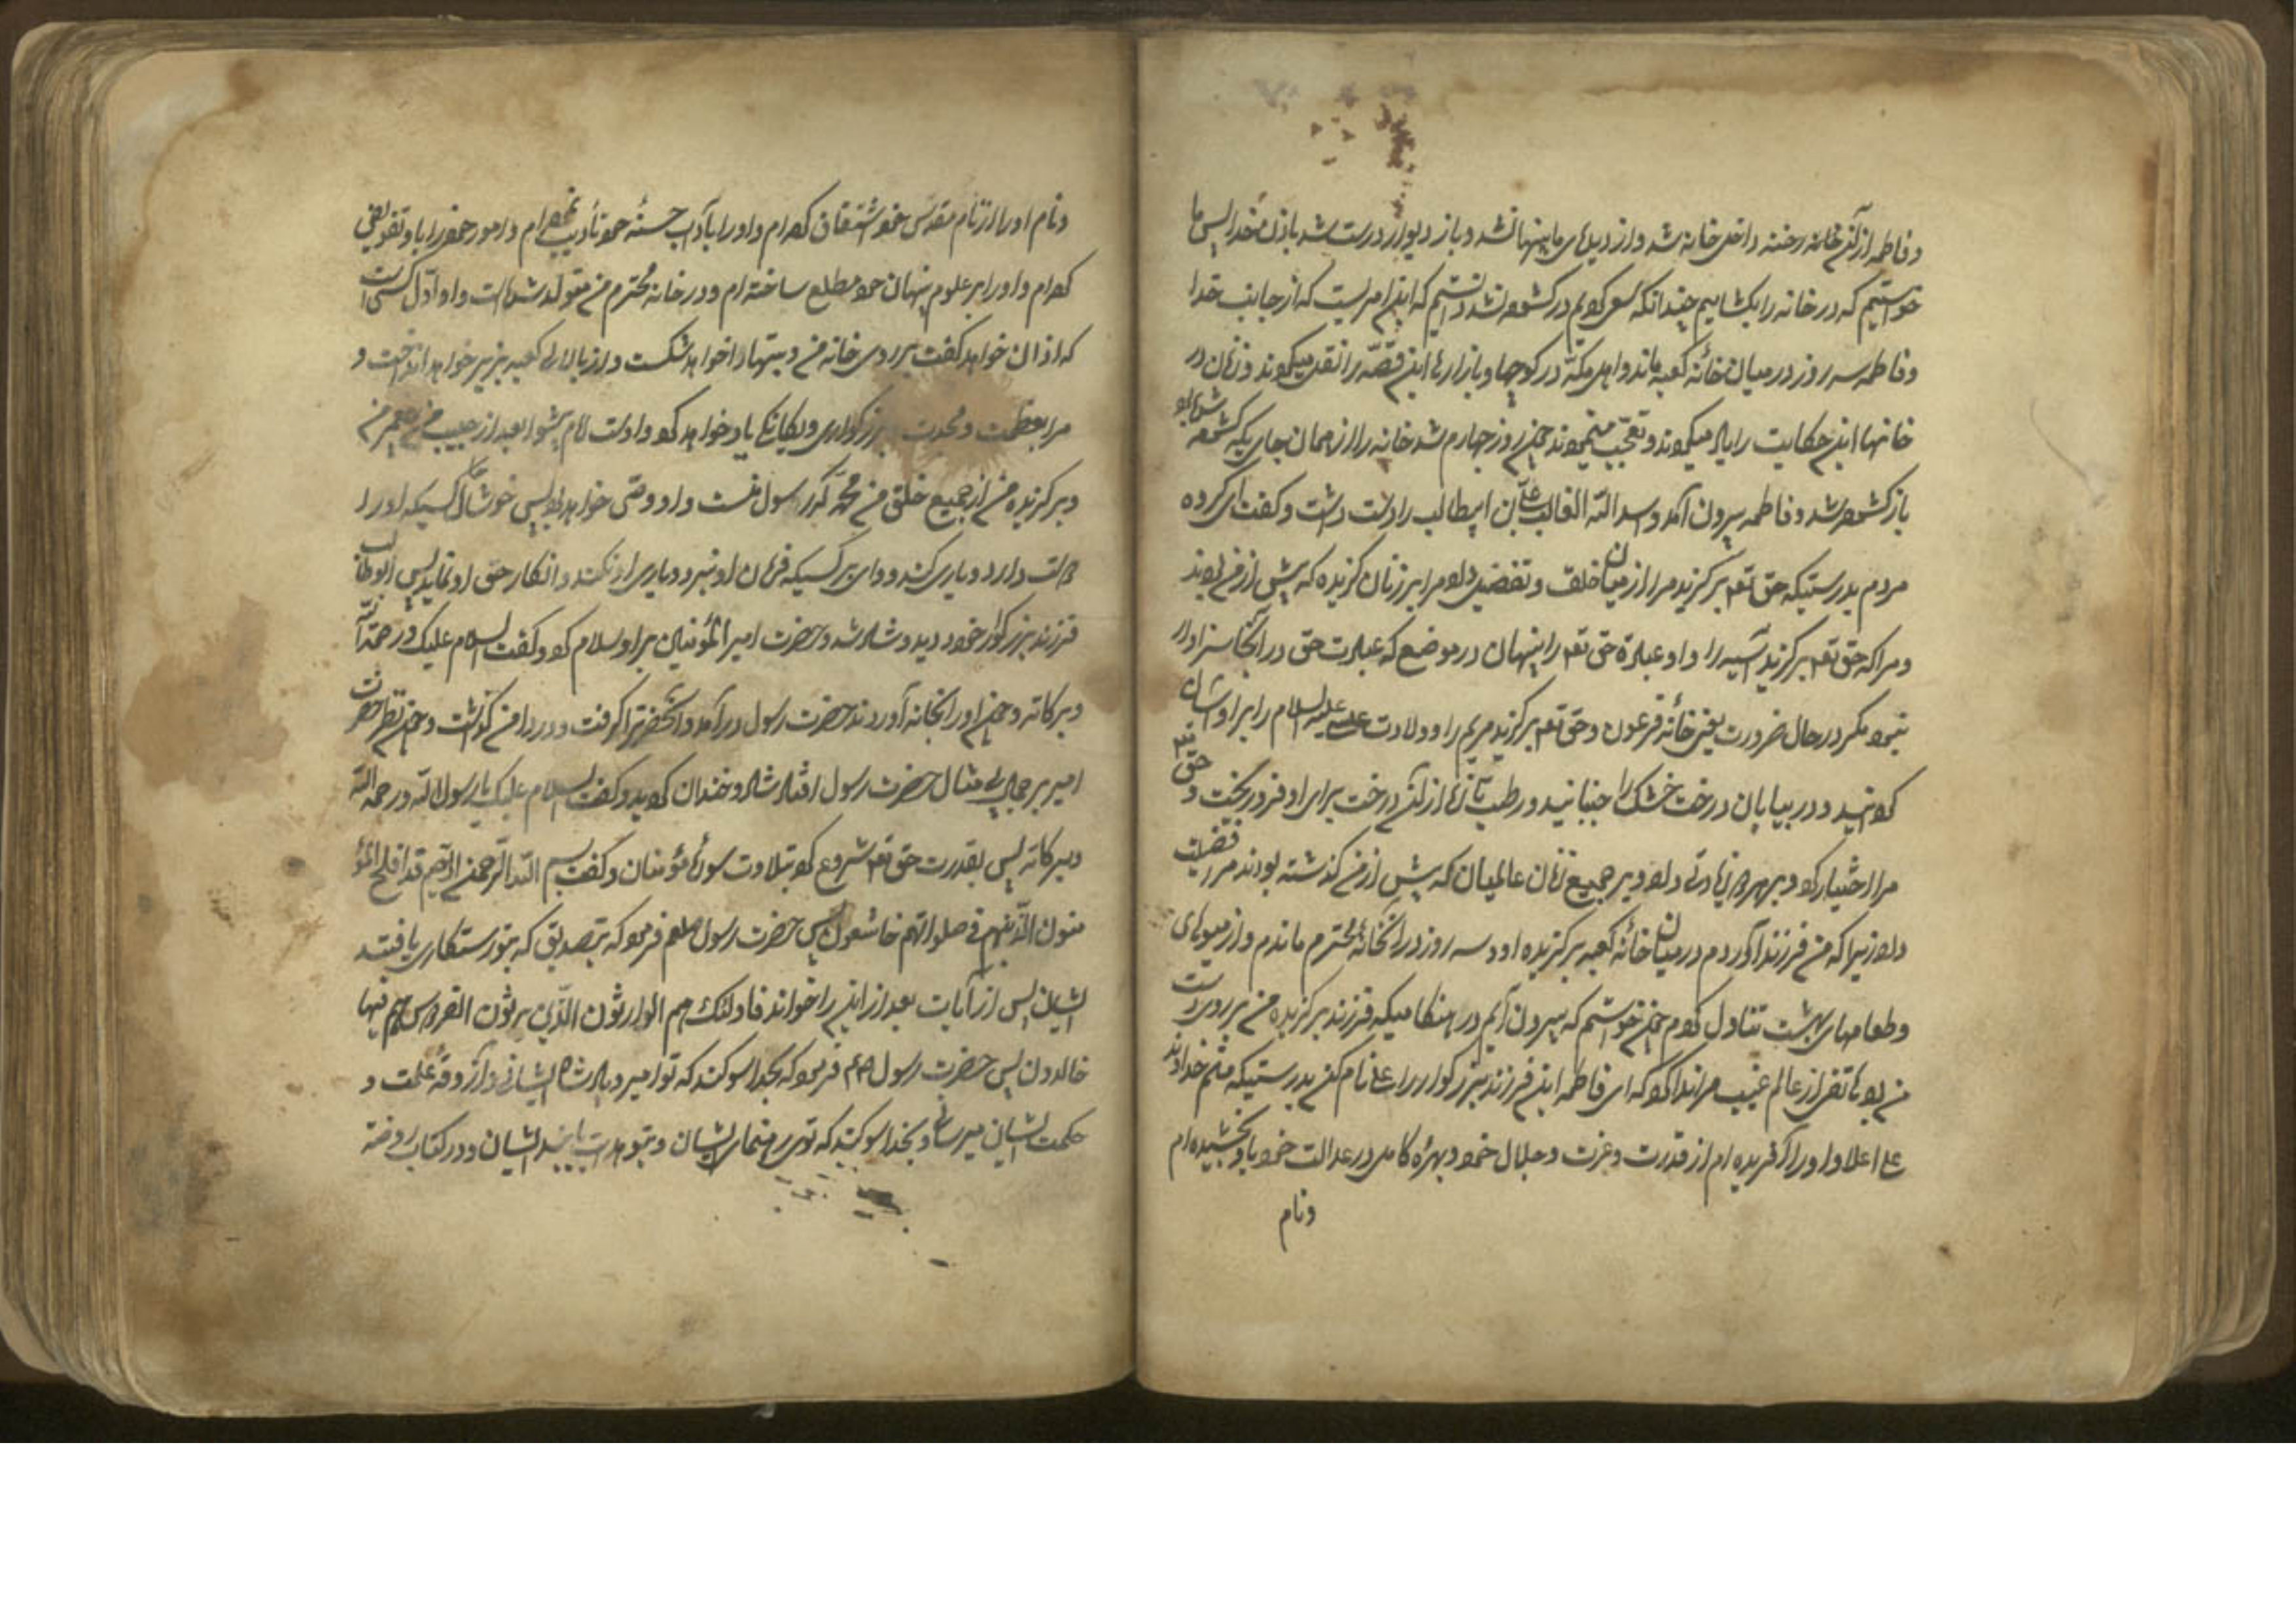 و فاطمه از آن رخنه داخل خانه شد و از دیدهای ما پنهان شد و باز دیوار درست شد باذن خدا پس ما
خواستیم که در خانه را بکشاییم چندانکه سعی کردیم در کشوده نشد دانستیم که این امریست که از جانب خدا
و فاطمه سه روز در میان خانهٔ کعبه ماند و اهل مکّه در کوچها و بازارها این قصّه را نقل میکردند و زنان در
خانها این حکایت را یاد میکردند و تعجّب مینمودند چون روز چهارم شد خانه را از همان جای که کشوده شده بود
باز کشوده شد و فاطمه بیرون آمد و اسد اللّه الغالب علی بن ابیطالب را در دست داشت و کفت ای کروه
مردم بدرستیکه حق تعه برکزید مرا از میان خلق و تفضیل داد مرا بر زنان کزیده که پیش از من بودند
و مرا که حق تعه برکزید آسیه را و او عبادة حق تعه را پنهان در موضع که عبادت حق در آنجا سزاوار
نبود مکر در حال ضرورت یعنی خانهٔ فرعون و حق تعه برکزید مریم را و ولادت عیسی علیه السلام را بر او آسان
کردانید و در بیابان درخت خشک را جنبانید و رطب تازه از آن درخت برای او فرو ریخت و حق تعه
مرا اختیار کرد و بر هر دو زیادتی داد و بر جمیع زنان عالمیان که پیش از من کذشته بودند مرا فضیلت
داد زیرا که من فرزند آوردم در میان خانهٔ کعبه برکزیده او و سه روز در آنخانهٔ محترم ماندم و از میوهای
و طعامهای بهشت تناول کردم چون خواستم که بیرون آیم در هنکامیکه فرزند برکزیده من بر روی دست
من بود هاتفی از عالم غیب مرا ندا کرد که ای فاطمه این فرزند بزرکوار را علی نام کن بدرستیکه منم خداوند
علی اعلا و او را آفریده ام از قدرت و عزت و جلال خود و بهرهٔ کامل در عدالت خود باو بخشیده ام
و نام
و نام او را از نام مقدس خود اشتقاق کرده ام و او را بآداب حسنهٔ خود تأدیب نموده ام و امور خود را باو تفویض
کرده ام و او را بر علوم پنهان خود مطلع ساخته ام و در خانه محترم من متولد شده است و او اوّل کسی است
که اذان خواهد کفت بر روی خانه من و بتها را خواهد شکست و از بالای کعبه بزیر خواهد انداخت و
مرا بعظمت و مجدت و بزرکواری و یکانکی یاد خواهد کرد و اوست امام و پیشوا بعد از حبیب من پیغمبر من
و برکزیده من از جمیع خلق من محمّد که رسول منست و او وصّی خواهد بود پس خوشا حال کسیکه او را
دوست دارد و یاری کند و وای بر کسیکه فرمان او نبرد و یاری او نکند و انکار حق او نماید پس ابوطالب
فرزند بزرکوار خود دید و شاد شد و حضرت امیر المؤمنین بر او سلام کرد و کفت السلام علیک و رحمة اللّه
و برکاته و چون او را بخانه آوردند حضرت رسول درآمد و آنحضرترا کرفت و در دامن کذاشت و چون نظر حضرت
امیر بر جمال بی مثال حضرت رسول افتاد شاد و خندان کردید و کفت السلام علیک یا رسول اللّه و رحمه اللّه
و برکاته پس بقدرت حق تعه شروع کرد بتلاوت سورهٔ مؤمنان و کفت بسم اللّه الرّحمن الرّحیم قد افلح المؤ
منون الّذینهم فی صلواتهم خاشعون پس حضرت رسول صلعم فرمود که بتصدیق که بتو رستکاری یافتند
ایشان پس از آیات بعد از این را خواند تا اولئک هم الوارثون الّذین یرثون الفردوس هم فیها
خالدون پس حضرت رسول صلعم فرمود که بخدا سوکند که تو امیر و پادشاه ایشانی و از آذوقهٔ علمت و
حکمت ایشان میرسانی و بخدا سوکند که توی رهنمای ایشان و بتو هدایت یابند ایشان و در کتاب روضة